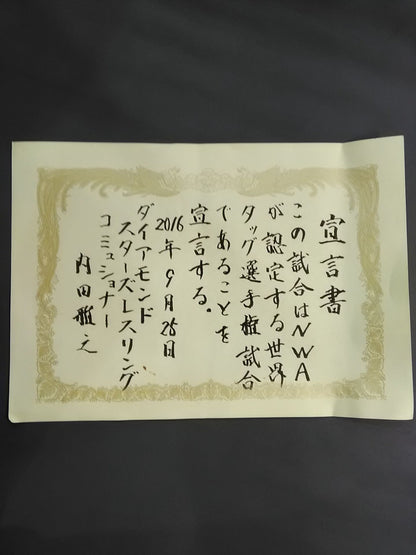 宣言書
この試合はNWA
が認定する世界
タッグ選手権試合
であることを
宣言する。
2016年9月25日
ダイアモンド
スターズ・レスリング
コミュショナー
内田雅之